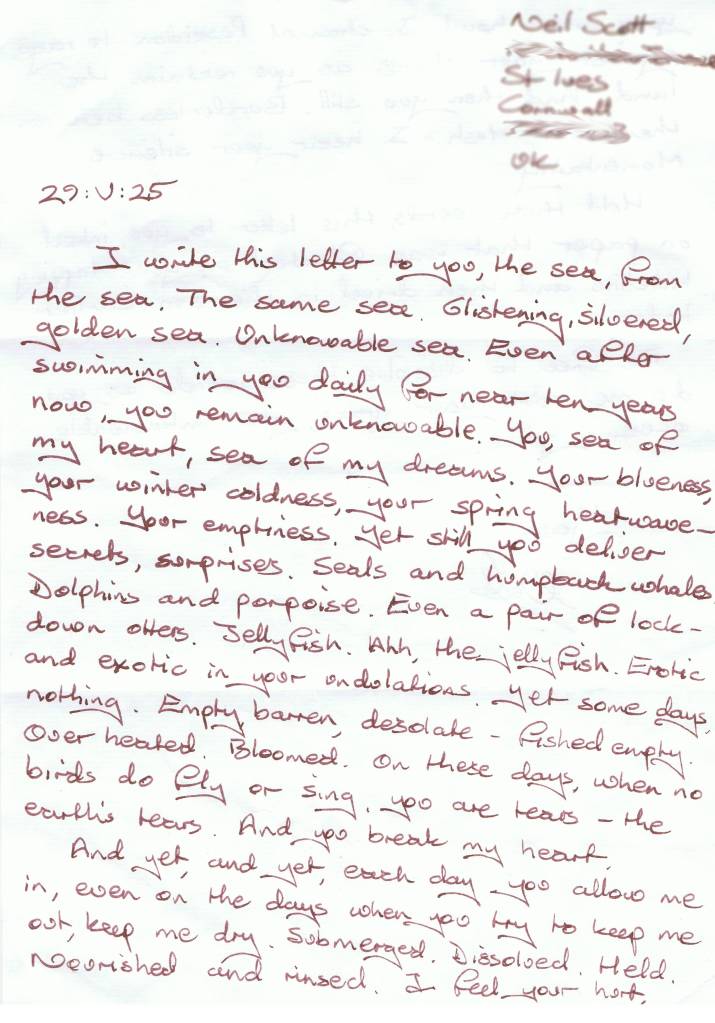 Neil Scott
St Ives
Cornwall
UK
29:V:25
I write this letter to you, the sea, from
the sea. The same sea. Glistening, silvered,
golden sea. Unknowable sea. Even after
swimming in you daily for near ten years
now, you remain unknowable. You, sea of
my heart, sea of my dreams. Your blueness,
your winter coldness, your spring heatwave-
ness. Your emptiness. Yet still you deliver
secrets, surprises. Seals and humpback whales.
Dolphins and porpoise. Even a pair of lock-
down otters. Jellyfish. Ahh, the jellyfish. Erotic
and exotic in your undulations. Yet some days,
nothing. Empty, barren, desolate - fished empty.
Over heated. Bloomed. On these days, when no
birds do fly or sing, you are tears - the
earth's tears. And you break my heart.
And yet, and yet, each day you allow me
in, even on the days when you try to keep me
out, keep me dry. Submerged. Dissolved. Held.
Nourished and rinsed. I feel your hurt,